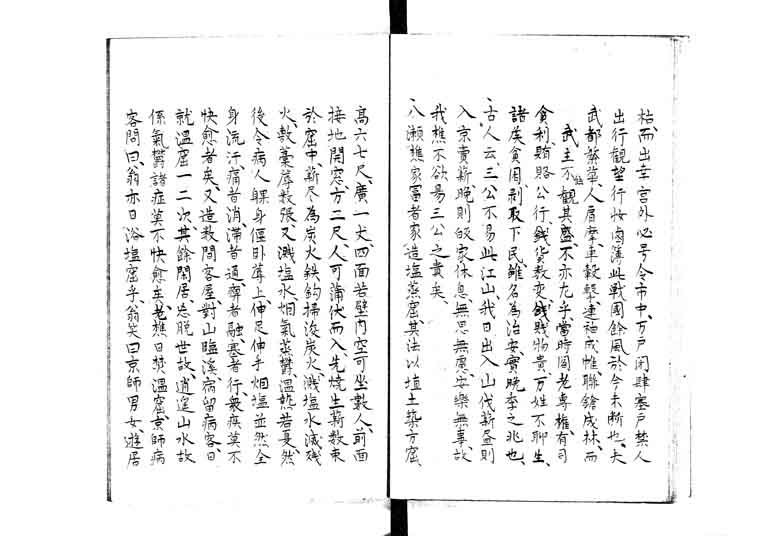 枯而出幸宮外必号令市中万戸閉肆塞戸禁人
出行観望行妆鹵簿此戦國餘風於今未断也夫
武都繁華人肩摩車轂撃連袖成帷聯鎗成林而
武主不観其盛不亦左乎當時閣老專権有司
貪利賄賂公行銭貨数変銭賤物貴万姓不聊生
諸矦貧困剥取下民雖名為治安實晩季之兆也
古人云三公不易此江山我日出入山伐薪盈則
入京賣薪晩則皈家休息無思無慮安樂無事故
我樵不欲易三公之貴矣
八瀬樵家冨者家造塩蒸窟其法以埴土築方窟
髙六七尺廣一丈四面若壁内空可坐数人前面
接地開窓方二尺人可蒲伏而入先焼生薪数束
於窟中薪尽為炭火鉄鈎掃浚炭火濺塩水滅残
火敷藁蓐数張又濺塩水烟氣蒸欝温然若夏然
後令病人躶身偃卧蓐上伸足伸手烟塩並然全
身流汗痛者消滞者通癖者融塞者行衆疾莫不
快愈者矣又造数間客屋對山臨溪病留病客日
就温窟一二次其餘閑居忘脱世故逍遥山水故
係氣欝諸症莫不快愈矣老樵日焚温窟京師病
客問曰翁亦日浴塩窟乎翁笑曰京師男女遊居